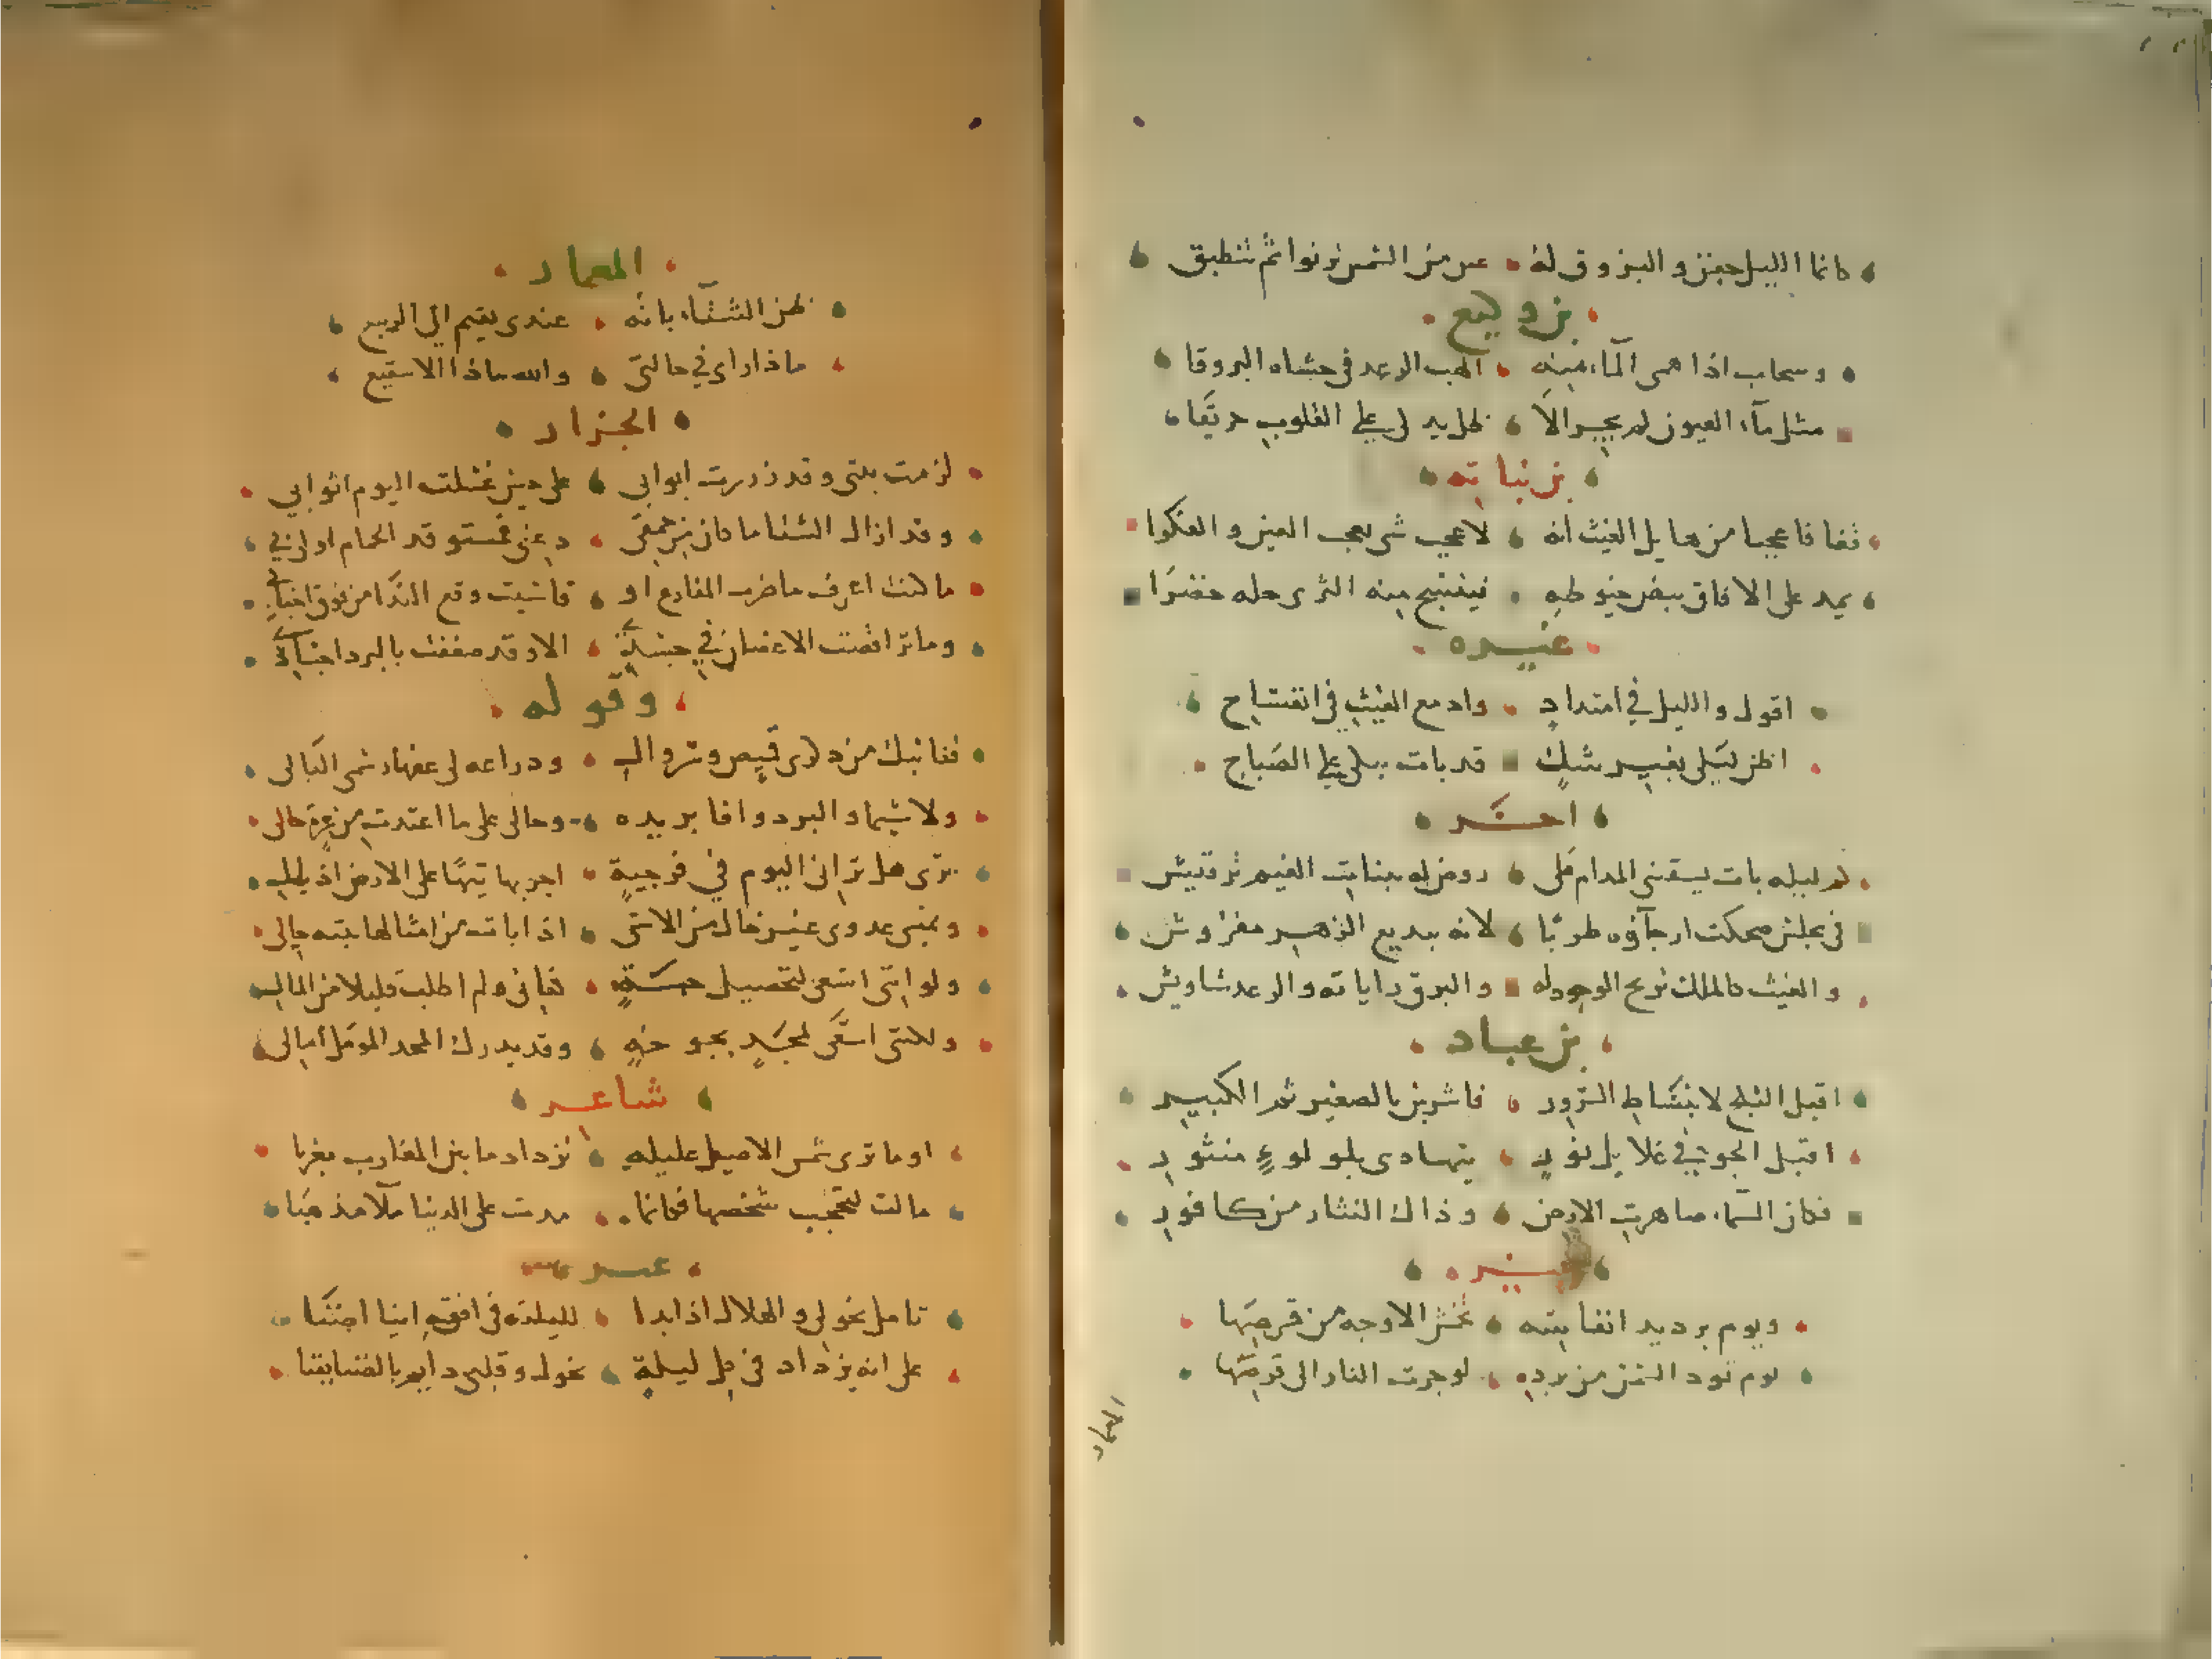 كانما الليل جفن والبروق له عين من الشمس ترنوا ثم تنطبق
بن وكيع
وسحاب اذا همى المآء منه الهب الرعد فى حشاه البروقا
مثل مآء العيون لم يجر الا ظل يد لى على القلوب حريقا
بن نباته
فاعجبا من هايل الغيث انه لاعجب شى يعجب العين والفكرا
يمد على الافاق بيض خيوطه فينسج منه الثرى حله خضرا
غيره
اقول والليل في امتداد وادمع الغيث في انفساح
اظن ليلى بغير شك قد بات يبكى على الصباح
اخر
كم ليله بات يسقينى المدام على روض له بنات الغيم ترقيش
فى مجلس ضحكت ارجآؤه طربا لانه ببديع الزهر مفروش
والغيث كالملك الوجود له والبرق راياته والرعد شاويش
بن عباد
اقبل الثلج لانبساط السرور فاشربن بالصغير ثم الكبير
اقبل الجو في غلايل نور يتهادى بلولوء منثور
فكان السمآء صاهرت الارض وذاك النثار من كافور
غيره
ويوم برد يد انفاسه تخمش الاوجه من قرصها
يوم تود الشمس من برده لو جرت النار الى قرصها
المعمار
المعمار
ظن الشتآء بانه عندى يقيم الى الربيع
ماذا راى في حالتى والله ماذا الا سقيع
الجزار
لزمت بيتى وقد زررت ابوابى على حين غسلت اليوم اثوابي
وقد ازال الشتا ما كان من حمقى دعنى فمستوقد الحمام اولى بي
ما كنت اعرف ما ضرب المقارع او قاسيت وقع الندا من فوق اجنابي
وما تراقصت الاعضا في جسدي الا وقد صفقت بالبرد انيابي
وقوله
قفا نبك من ذكرى قميص وسروال ودراعه لى عفا رسمها البالى
ولا سيما والبرد وافا بريده وحالى على ما اعتدت من عسرة حالى
ترى هل ترانى اليوم في فرجية اجر بها تيها على الارض اذيالى
ويمسى عدوى غير خال من الاسى اذا بات من امثالها بيته خالى
ولو اننى اسعى لتحصيل جبة كفانى ولم اطلب قليلا من المال
ولكننى اسعى لمجد بجوخة وقد يدرك المجد المؤمل امثالى
شاعر
او ما ترى شمس الاصيل عليله تزداد ما بين المغارب مغربا
مالت لتحجب شخصها فكانما مدت على الدنيا ملآ مذهبا
غيره
تامل نحولى والهلال اذا بدا لليلته فى افقه اينا اضنا
على انه يزداد فى كل ليلة نحول وقلبى دايم بالضنا يفنا